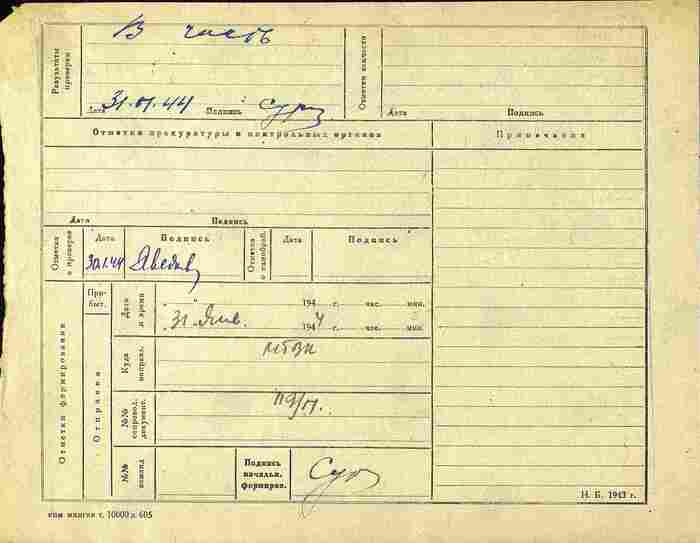 Результаты проверки
В часть
Дата 31.01.44 Подпись
Отметки ценности
Дата Подпись
Отметки прокуратуры и контрольных органов
Примечания
Дата Подпись
Отметка о проверке
Дата
Подпись
Отметка о санобраб.
Дата
Подпись
30.1.44
Отметки формирования
Прибыт.
Отправка
Дата и время
194 г. час. мин.
31 Янв. 1944 г. час. мин.
Куда направл.
№№ сопровод. документ.
119/п.
№№ команд
Подпись начальн. формиров.
Н. Б. 1943 г.
т. 10000 д. 605